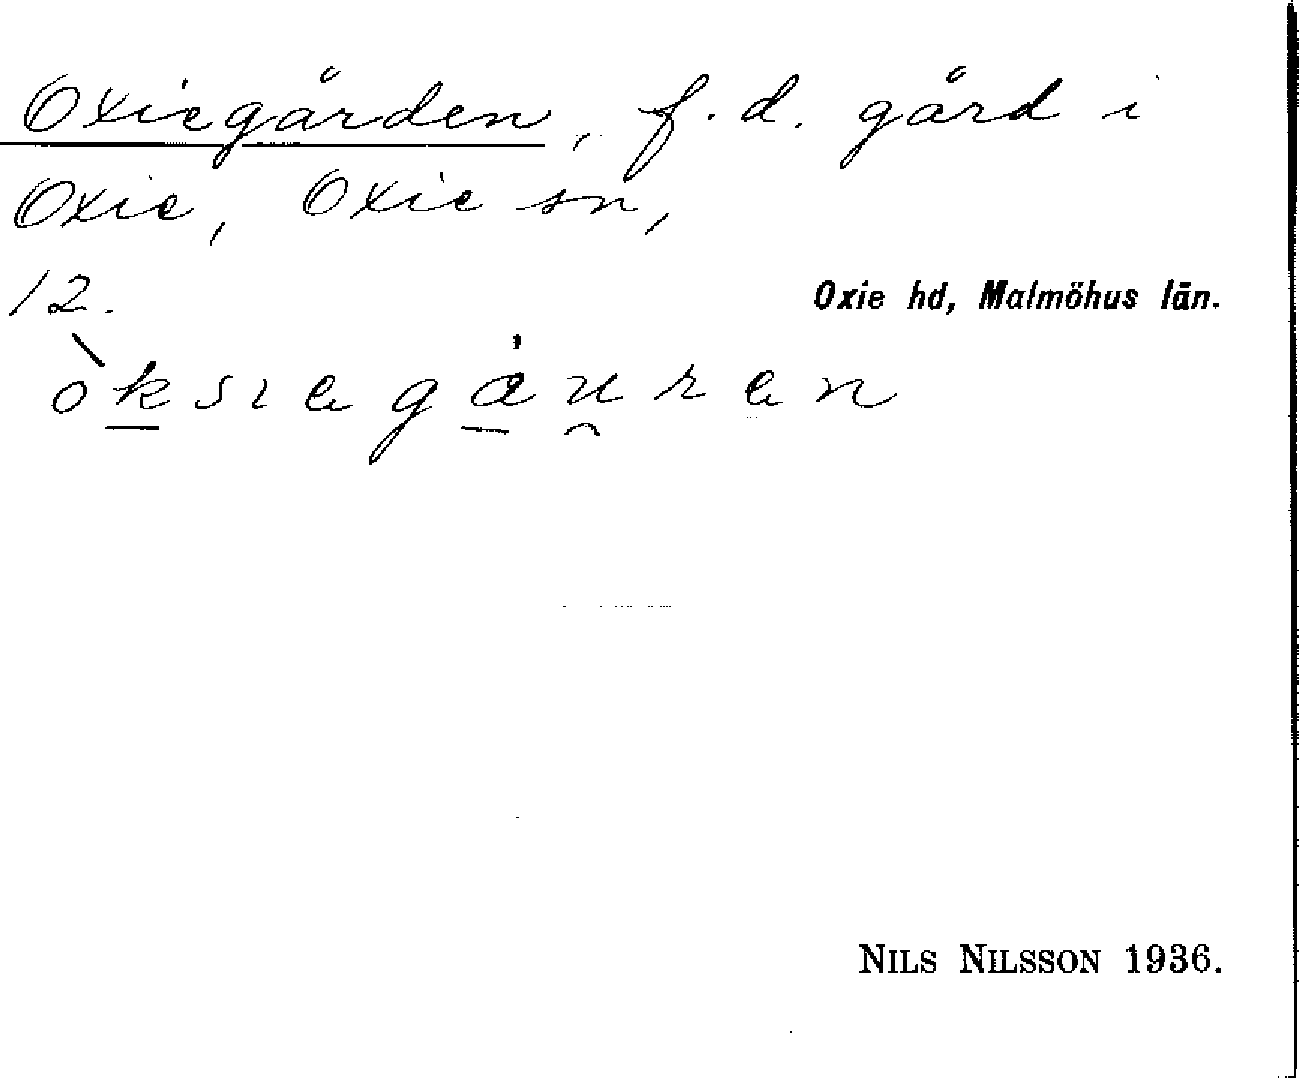 Oxiegården, f.d. gård i
Oxie, Oxie sn,
12.
Oxie hd, Malmöhus län.
òksıegáuren
NILS NILSSON 1936.